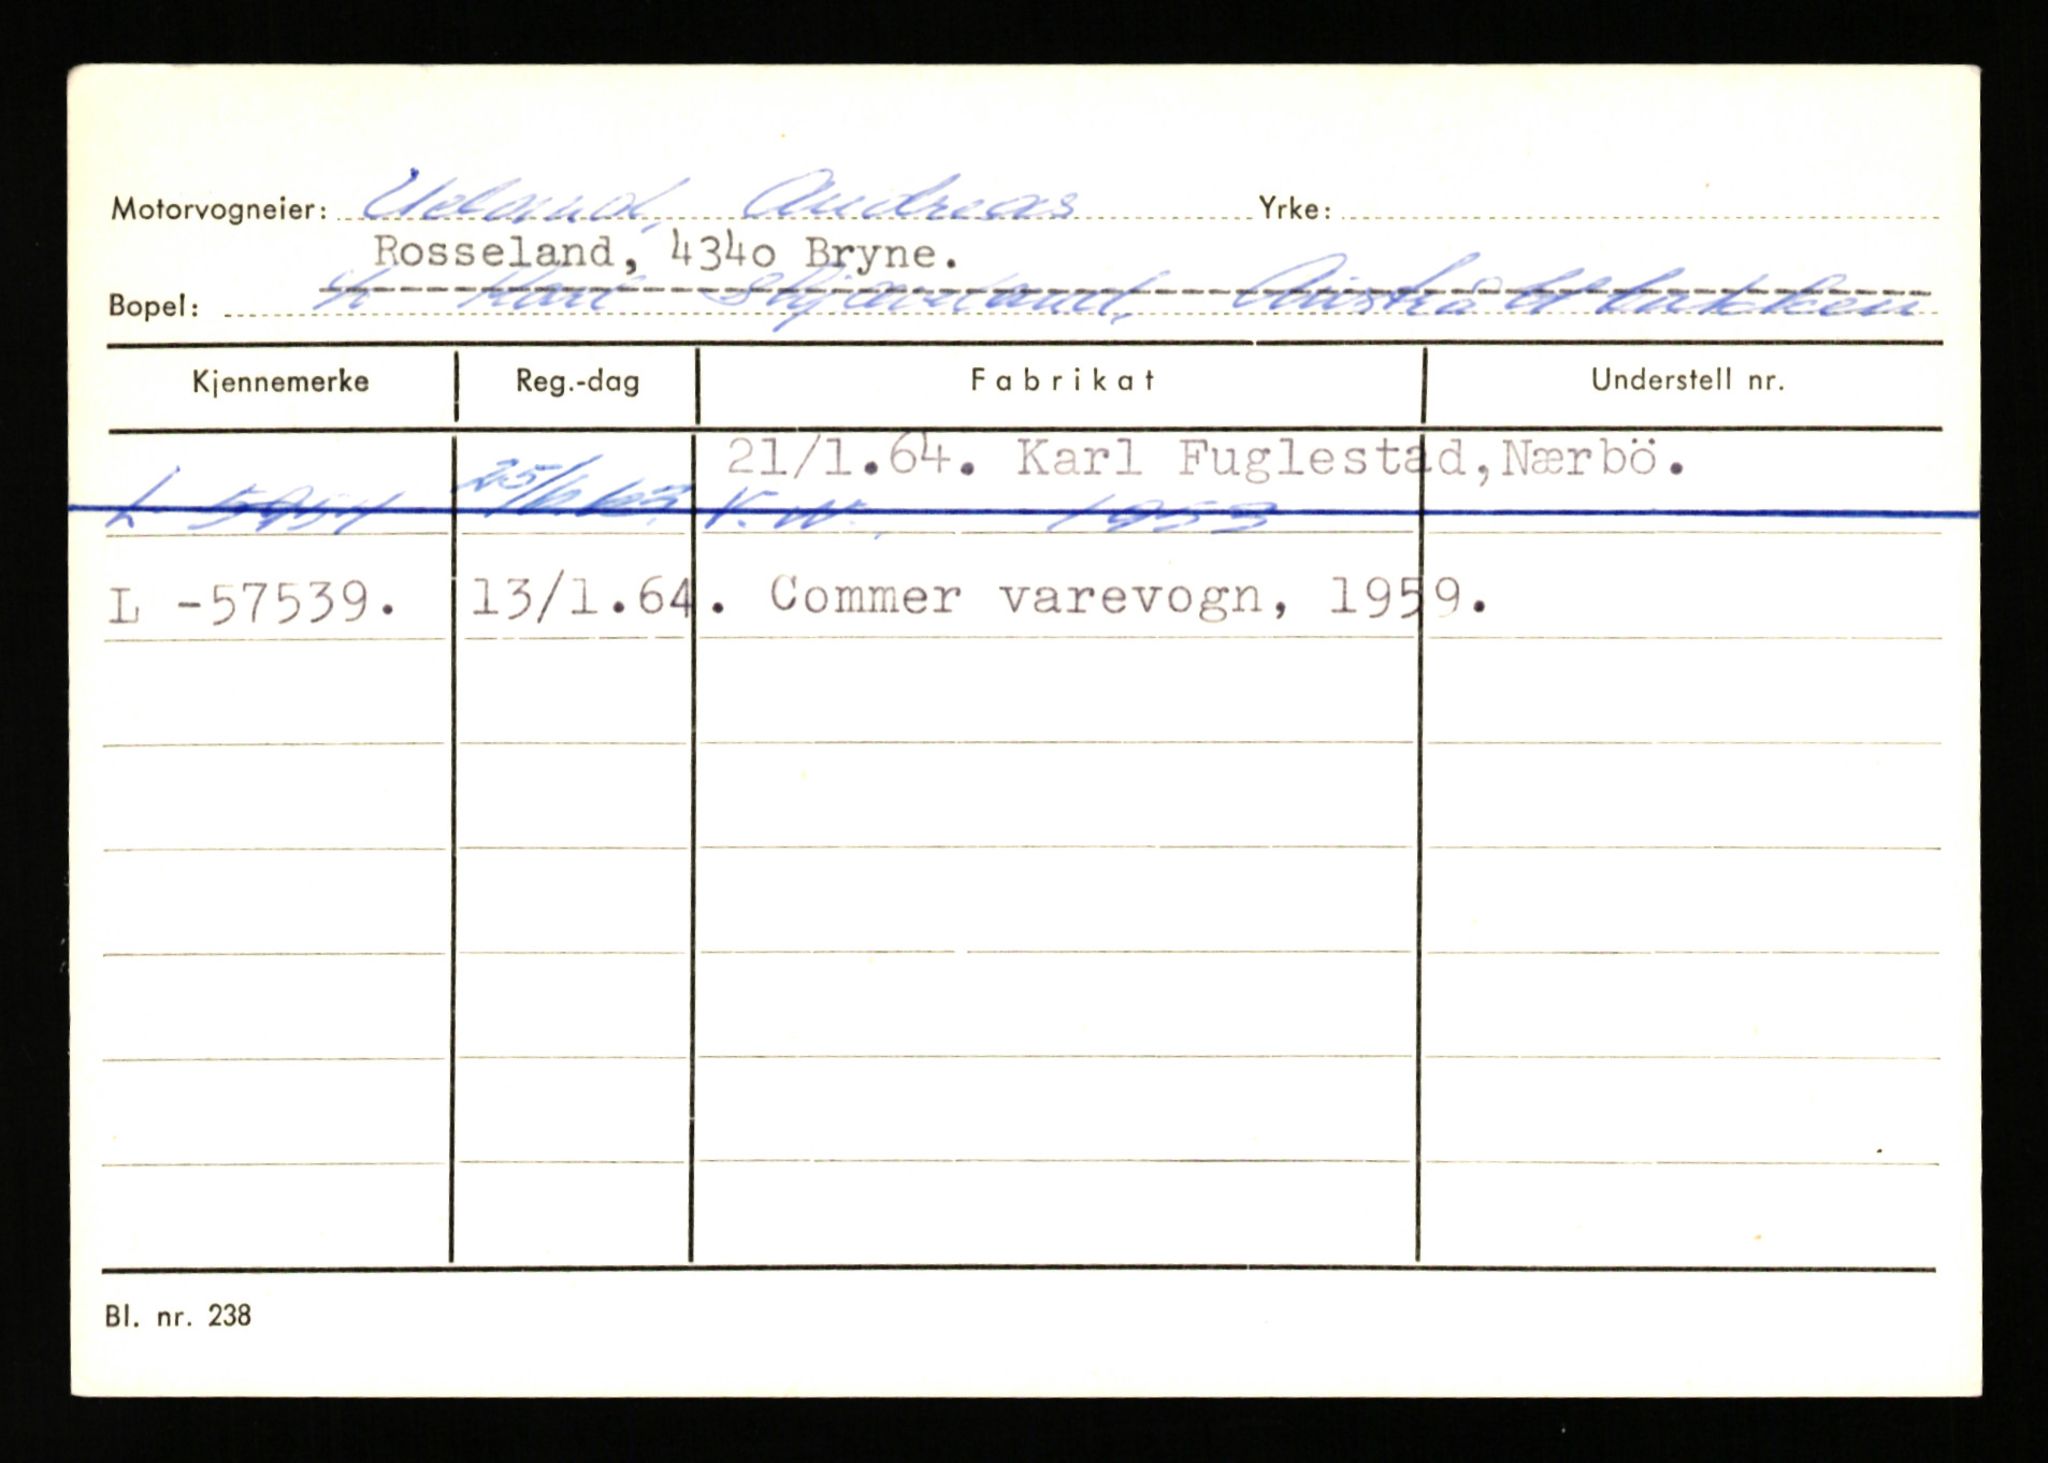 Motorvogneier: Ueland, Andreas Yrke:
Rosseland, 4340 Bryne.
Bopel: Karl Skjæveland, Austråttbakken
Kjennemerke Reg.-dag Fabrikat Understell nr.
21/1.64. Karl Fuglestad,Nærbö.
L 25/6 63. V.W. 1953
L -57539. 13/1.64. Commer varevogn, 1959.
Bl. nr. 238